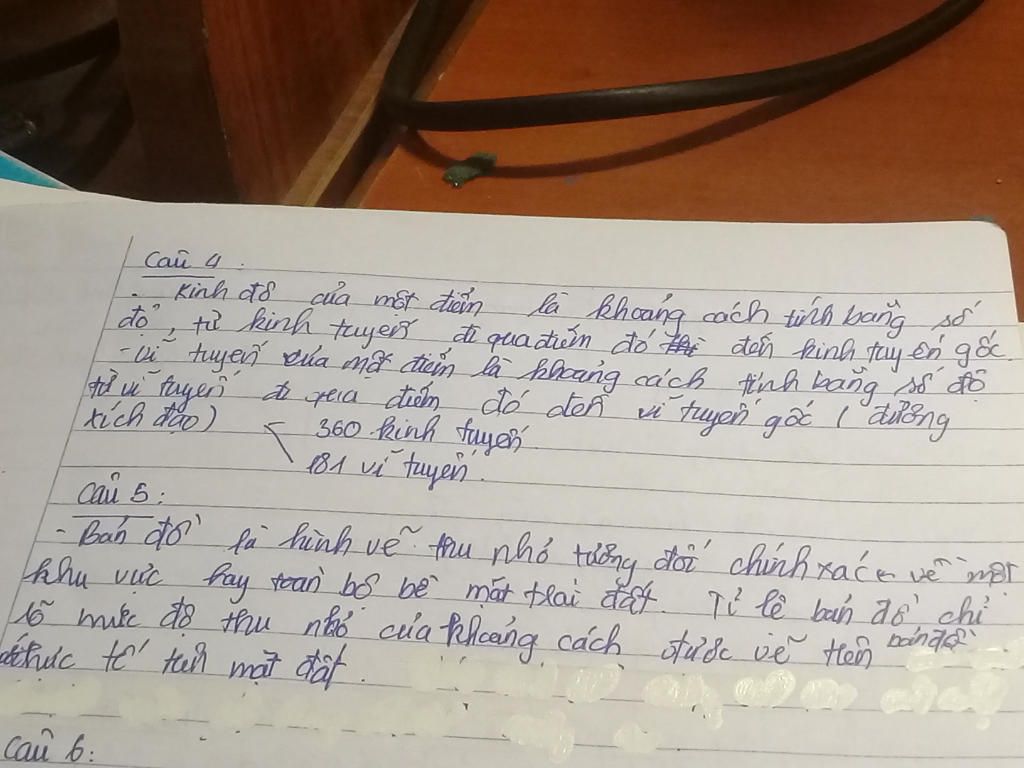 Câu 4:
- Kinh độ của một điểm là khoảng cách tính bằng số
độ, từ kinh tuyến đi qua điểm đó đến kinh tuyến gốc.
- vĩ tuyến của một điểm là khoảng cách tính bằng số độ
từ vĩ tuyến đi qua điểm đó đến vĩ tuyến gốc (đường
xích đạo)
360 kinh tuyến
181 vĩ tuyến.
Câu 5:
- Bản đồ là hình vẽ thu nhỏ tương đối chính xác về một
khu vực hay toàn bộ bề mặt trái đất. Tỉ lệ bản đồ chỉ
rõ mức độ thu nhỏ của khoảng cách được vẽ trên bản đồ
thực tế trên mặt đất.
Câu 6: